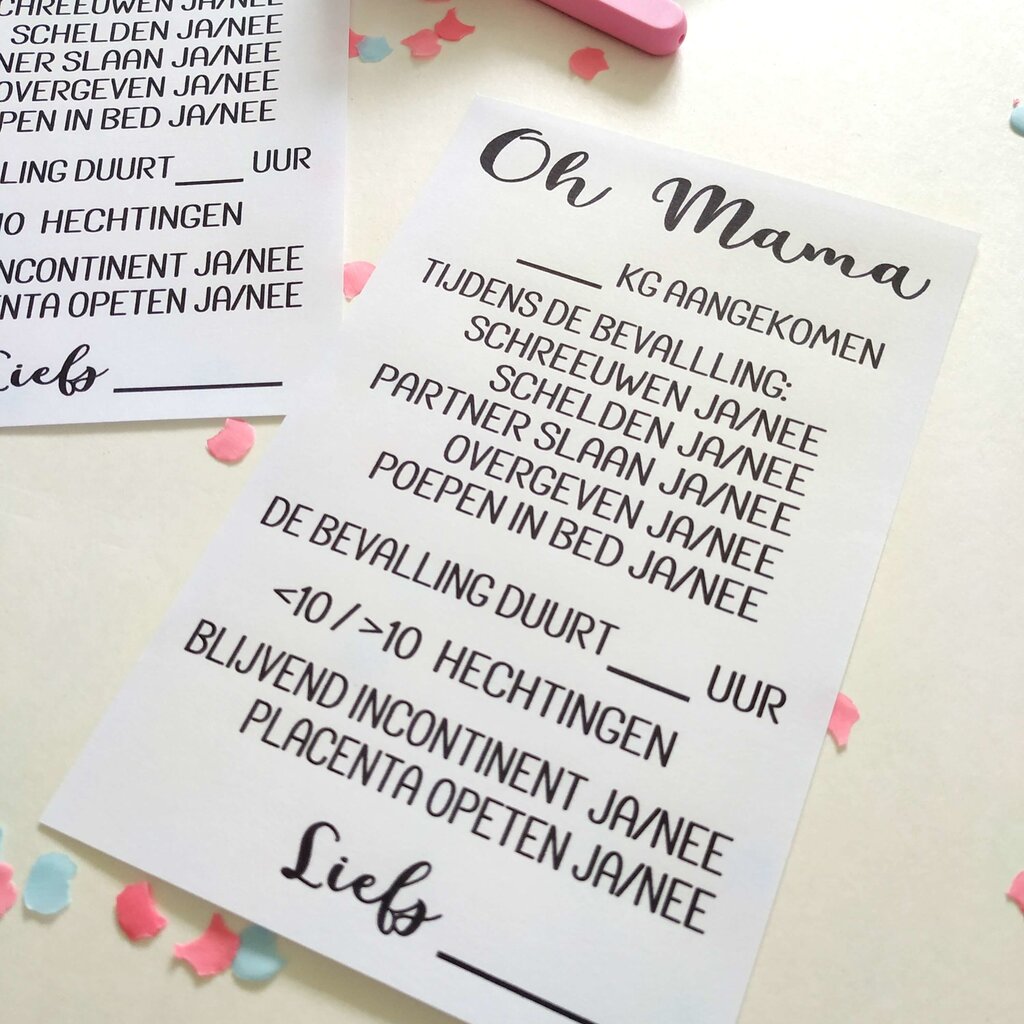 CHREEUWEN JA/NEE
SCHELDEN JA/NEE
NER SLAAN JA/NEE
OVERGEVEN JA/NEE
PEN IN BED JA/NEE
LING DUURT____ UUR
10 HECHTINGEN
NCONTINENT JA/NEE
ENTA OPETEN JA/NEE
Liefs ____
Oh Mama
____ KG AANGEKOMEN
TIJDENS DE BEVALLLING:
SCHREEUWEN JA/NEE
SCHELDEN JA/NEE
PARTNER SLAAN JA/NEE
OVERGEVEN JA/NEE
POEPEN IN BED JA/NEE
DE BEVALLING DUURT____ UUR
<10 / >10 HECHTINGEN
BLIJVEND INCONTINENT JA/NEE
PLACENTA OPETEN JA/NEE
Liefs ____